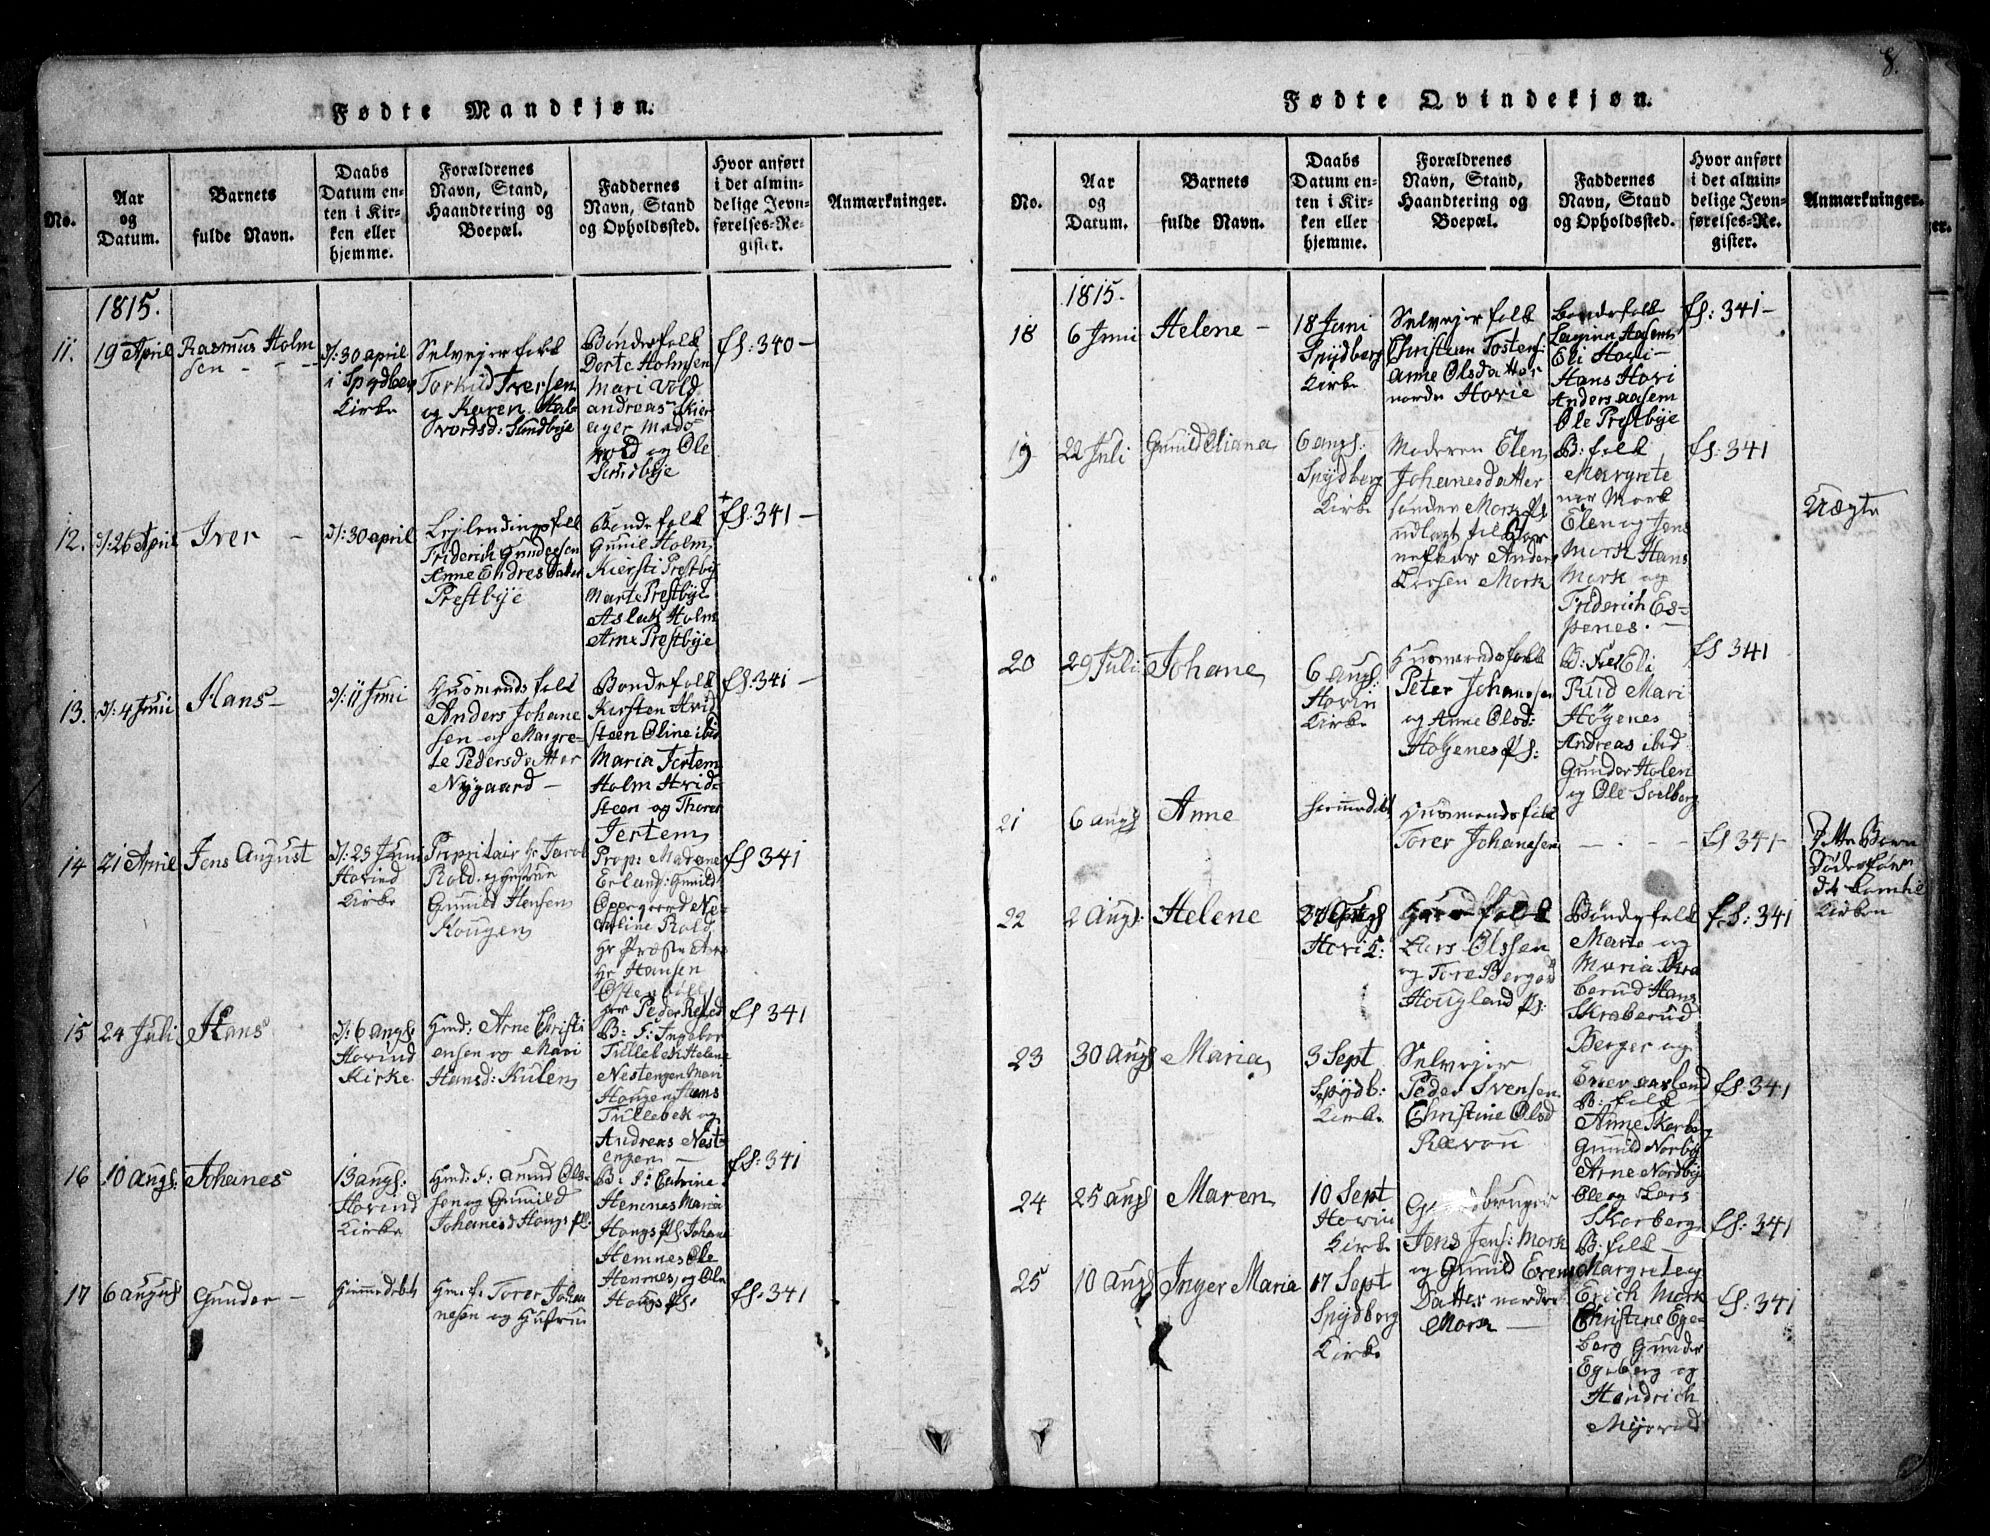 8.
Fødte Mandkjøn.
No.
Aar
og
Datum.
Barnets
fulde Navn.
Daabs
Datum en-
ten i Kir-
ken eller
hjemme.
Forældrenes
Navn, Stand,
Haandtering og
Boepæl.
Faddernes
Navn, Stand
og Opholdssted.
Hvor anført
i det almin-
delige Jevn-
førelses-Re-
gister.
Anmærkninger.
1815.
11.
19 April
Rasmus Holm
sen - - -
d/: 30 april
i Spydberg
Kirke
Selvejerfolk
Torkild Iversen
og Karen Hal-
vordsd: Sundbye
Bøndefolk
Dorte Holmsen
Mari Vold
andreas Kier-
ager Mads
Vold og Ole
Sundbye
fS: 340 -
12.
d/: 26 April
Iver -
d/: 30 april
Lejlendingsfolk
Friderich Gundersen
Anne Endresdatter
Prestbye
Bondefolk
Gunil Holm
Kiersti Prestby
Marte Prestbye
Aslak Holm
Arne Prestbye
fS: 341 -
13.
d/: 4 Juni
Hans -
d/: 11 Juni
Husmandsfolk
Anders Johane
sen og Margre-
te Pedersdatter
Nygaard -
Bondefolk
Kirsten Hvid
steen Oline ibid
Maria Jertem
Holm Hvid-
steen og Thorer
Jertem
fS: 341 -
14
21 April
Jens August
d/: 25 Juni
Hovind
Kirke
Propritair Hr Jacob
Rold og Hustrue
Gunild Hensen
Hougen
Prop: Madame
Erland: Gunild
Oppegaard Ne-
oline Rold
Hr Præsten
Hr Hansen
Hr Peder
fS 341
15
24 Juli
Hans
d/: 6 augS
Hovind
Kirke
Hmd: Arne Christi
ensen og Mari
Hansd: Kulen
B: F: Ingebor
Tullebek Helene
Nestengen Mari
Hougen Hans
Tullebek og
Andreas Nest-
engen -
fS 341
16
10 augS:
Johanes
13 augS:
Hovind
Kirke
Hmd: F: Amund Ols-
sen og Gunild
Johanesd Hougs pl.
B: F: Catrine
Hemnes Maria
Hougs pl: Johane
Hemnes Ole
Hemnes og Ole
Hougs pl:
fS: 341
17
6 augusS
Gunder -
Himmedebt
Hm. f. Torer Joha
nesen og Hustrue
fS: 341
Fødte Qvindekjøn.
No.
Aar
og
Datum.
Barnets
fulde Navn.
Daabs
Datum en-
ten i Kir-
ken eller
hjemme.
Forældrenes
Navn, Stand,
Haandtering og
Boepæl.
Faddernes
Navn, Stand
og Opholdssted.
Hvor anført
i det almin-
delige Jevn-
førelses-Re-
gister.
Anmærkninger.
1815.
18
6 Juni
Helene -
18 Juni
Spydberg
Kirke
Selvejerfolk
Christian Tostens:
Anne Olsdatter
nordre Hovie
Bondefolk
Eli Hovi -
Hans Hovi
Anders aasem
Ole Prestbye
fS: 341 -
19
22 Juli
Gunild Eliana
6 augS:
Spydberg
Kirke
Moderen Elen
Johanesdatter
sønder Mork pl
udlagt til Bar
nefaar Anders
Larsen Mork
B: folk
Margrete
nor Mork
Elen og Jens
Mork Hans
Mork og
Friderich Es-
penes. -
fS: 341
Uægte
20
29 Juli
Johane
6 augS:
Hovin
Kirke
Husmandsfolk
Peter Johanesen
og Anne Olsd:
Høyenes pl:
B: Folk Eli
Ruud Mari
Høgenes
Andreas ibid
Gunder Holen
og Ole Solberg
fS 341
21
6 augS
Anne
hiemmedebt
Husmandsfolk
Torer Johanesen
- - - -
fS 341 -
Dette Barn
Døde før
det komme
Kirken
22
2 AugS:
Helene
Hovi K:
folk
Lars Olssen
og Tore Berges
Hougland pl:
Bøndefolk
Marte og
Maria Skra
berud Hans
Skraberud
Berger og
Iver aasland
fS: 341
23
30 AugS
Maria
3 Sept
Spydb:
Kirke
Selvejer
Peder Svensen
Christine Olsd
Rævou
B: folk
Anne Skorberg
Gunild Norbÿ
Arne Nordbÿ
Ole og Lars
Skorberg
fS: 341
24
25 augS
Maren
10 Sept
Hovin
Kirke
Jens Jens: Mork
og Gunild Evens
Datter nordre
Mork -
B: folk -
Margrete og
Erich Mork
fS: 341
25
10 AugS
Inger Maria
17 Sept
Spydberg
Kirke
Christine Ege-
berg Gunder
Egeberg og
Hendrich
Myrvold
fS: 341